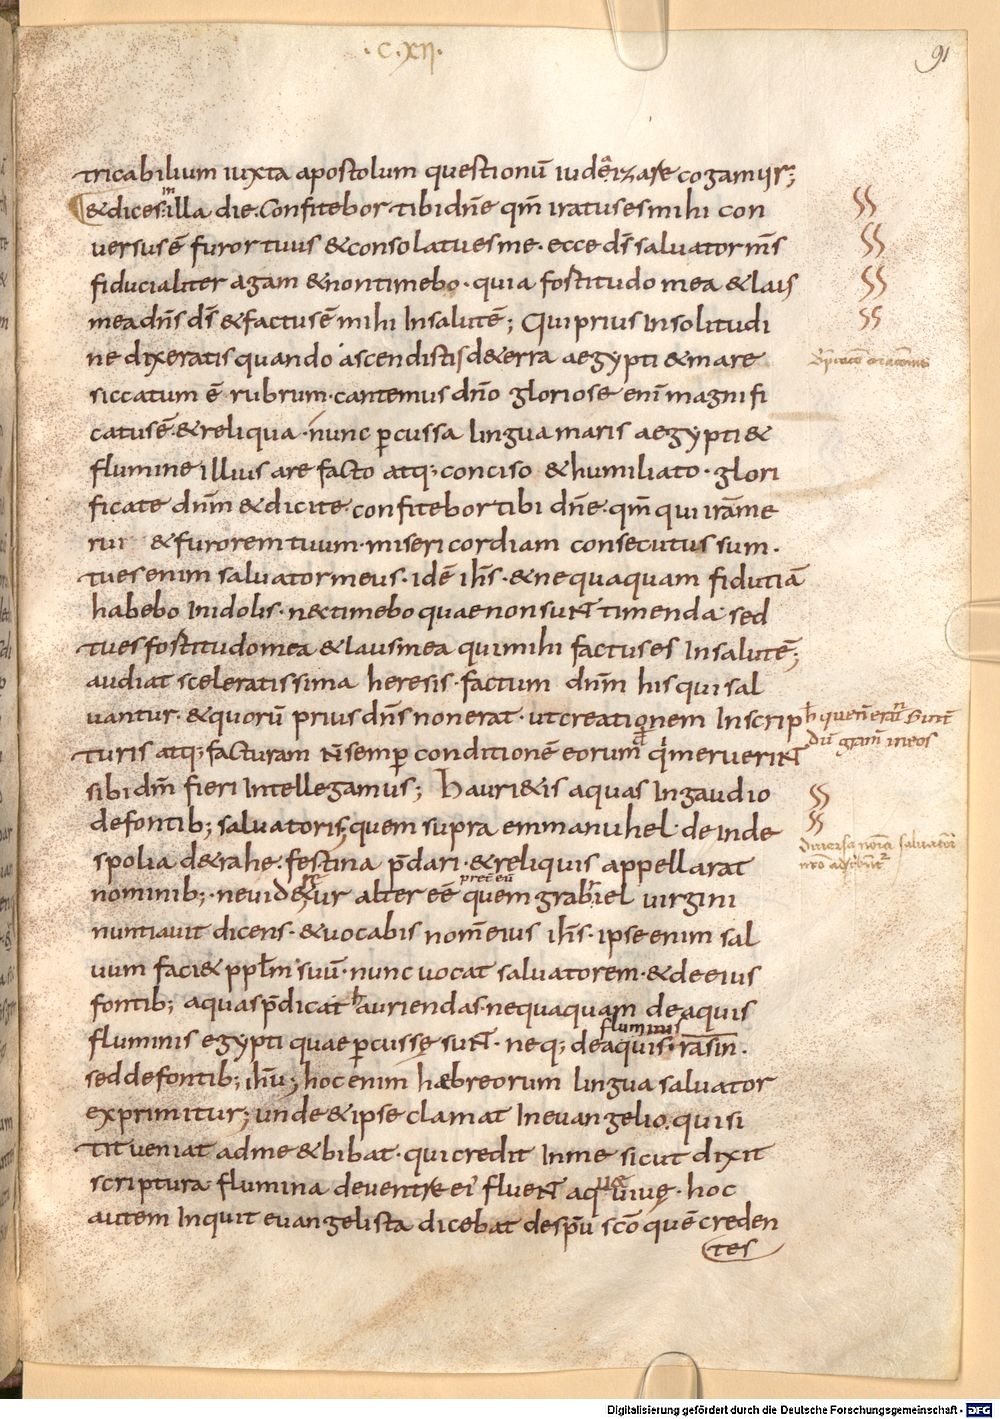 ·C·XII·
91
tricabilium iuxta apostolum questionū iudêizare cogamur;
&dices in illa die. Confitebor tibi dn̄e qm̄ iratus es mihi con
uersus ē furor tuus & consolatus es me· ecce ds̄ saluator m̄s
fiducialiter agam & non timebo· quia fortitudo mea & laus
mea dn̄s ds̄ & factus ē mihi In salutē; Qui prius In solitudi
ne dixeratis quando ascendistis d& erra aegypti & mare
siccatum ē rubrum· cantemus dn̄o gloriose enī magnifi
catus ē· & reliqua· nunc ꝑcussa lingua maris aegypti &
flumine illius are facto atq; conciso & humiliato· glori
ficate dn̄m & dicite· confitebor tibi dn̄e· qm̄ qui irām me
rui & furorem tuum· misericordiam consecutus sum·
tu es enim saluator meus· idē ih̄s· & nequaquam fidutiā
habebo In idolis· nec timebo quae non sunt timenda· sed
tu es fortitudo mea & laus mea qui mihi factus es In salutē;
audiat sceleratissima heresis· factum dn̄m his qui sal
uantur· & quorū prius dn̄s non erat· ut creationem In scrip
turis atq; facturam n̄ semꝑ conditionē eorum q̄ meruerint
sibi dn̄m fieri Intellegamus; Hauri&is aquas In gaudio
de fontib; saluatoris; quem supra emmanuhel· deinde
spolia d&rahe· festina p̄dari· & reliquis appellarat
nominib;· ne uider&ur alter eē preter eū quem grabriel uirgini
nuntiauit dicens· & uocabis nom̄ eius ih̄s· ipse enim sal
uum faci& pplm̄ suū· nunc uocat saluatorem· & de eius
fontib; aquas p̄dicat hauriendas· nequaquam de aquis
fluminis egypti quae ꝑcussę sunt· neq; de aquis fluminis rasin·
sed de fontib; ih̄u; hoc enim hæbreorum lingua saluator
exprimitur; unde & ipse clamat In euangelio· qui si
tit ueniat ad me & bibat· qui credit In me sicut dixit
scriptura· flumina de uentre ei' fluent aquae uiuę· hoc
autem Inquit euangelista dicebat de spū scō quē creden
tes
diuersa nōia saluatori
nrō